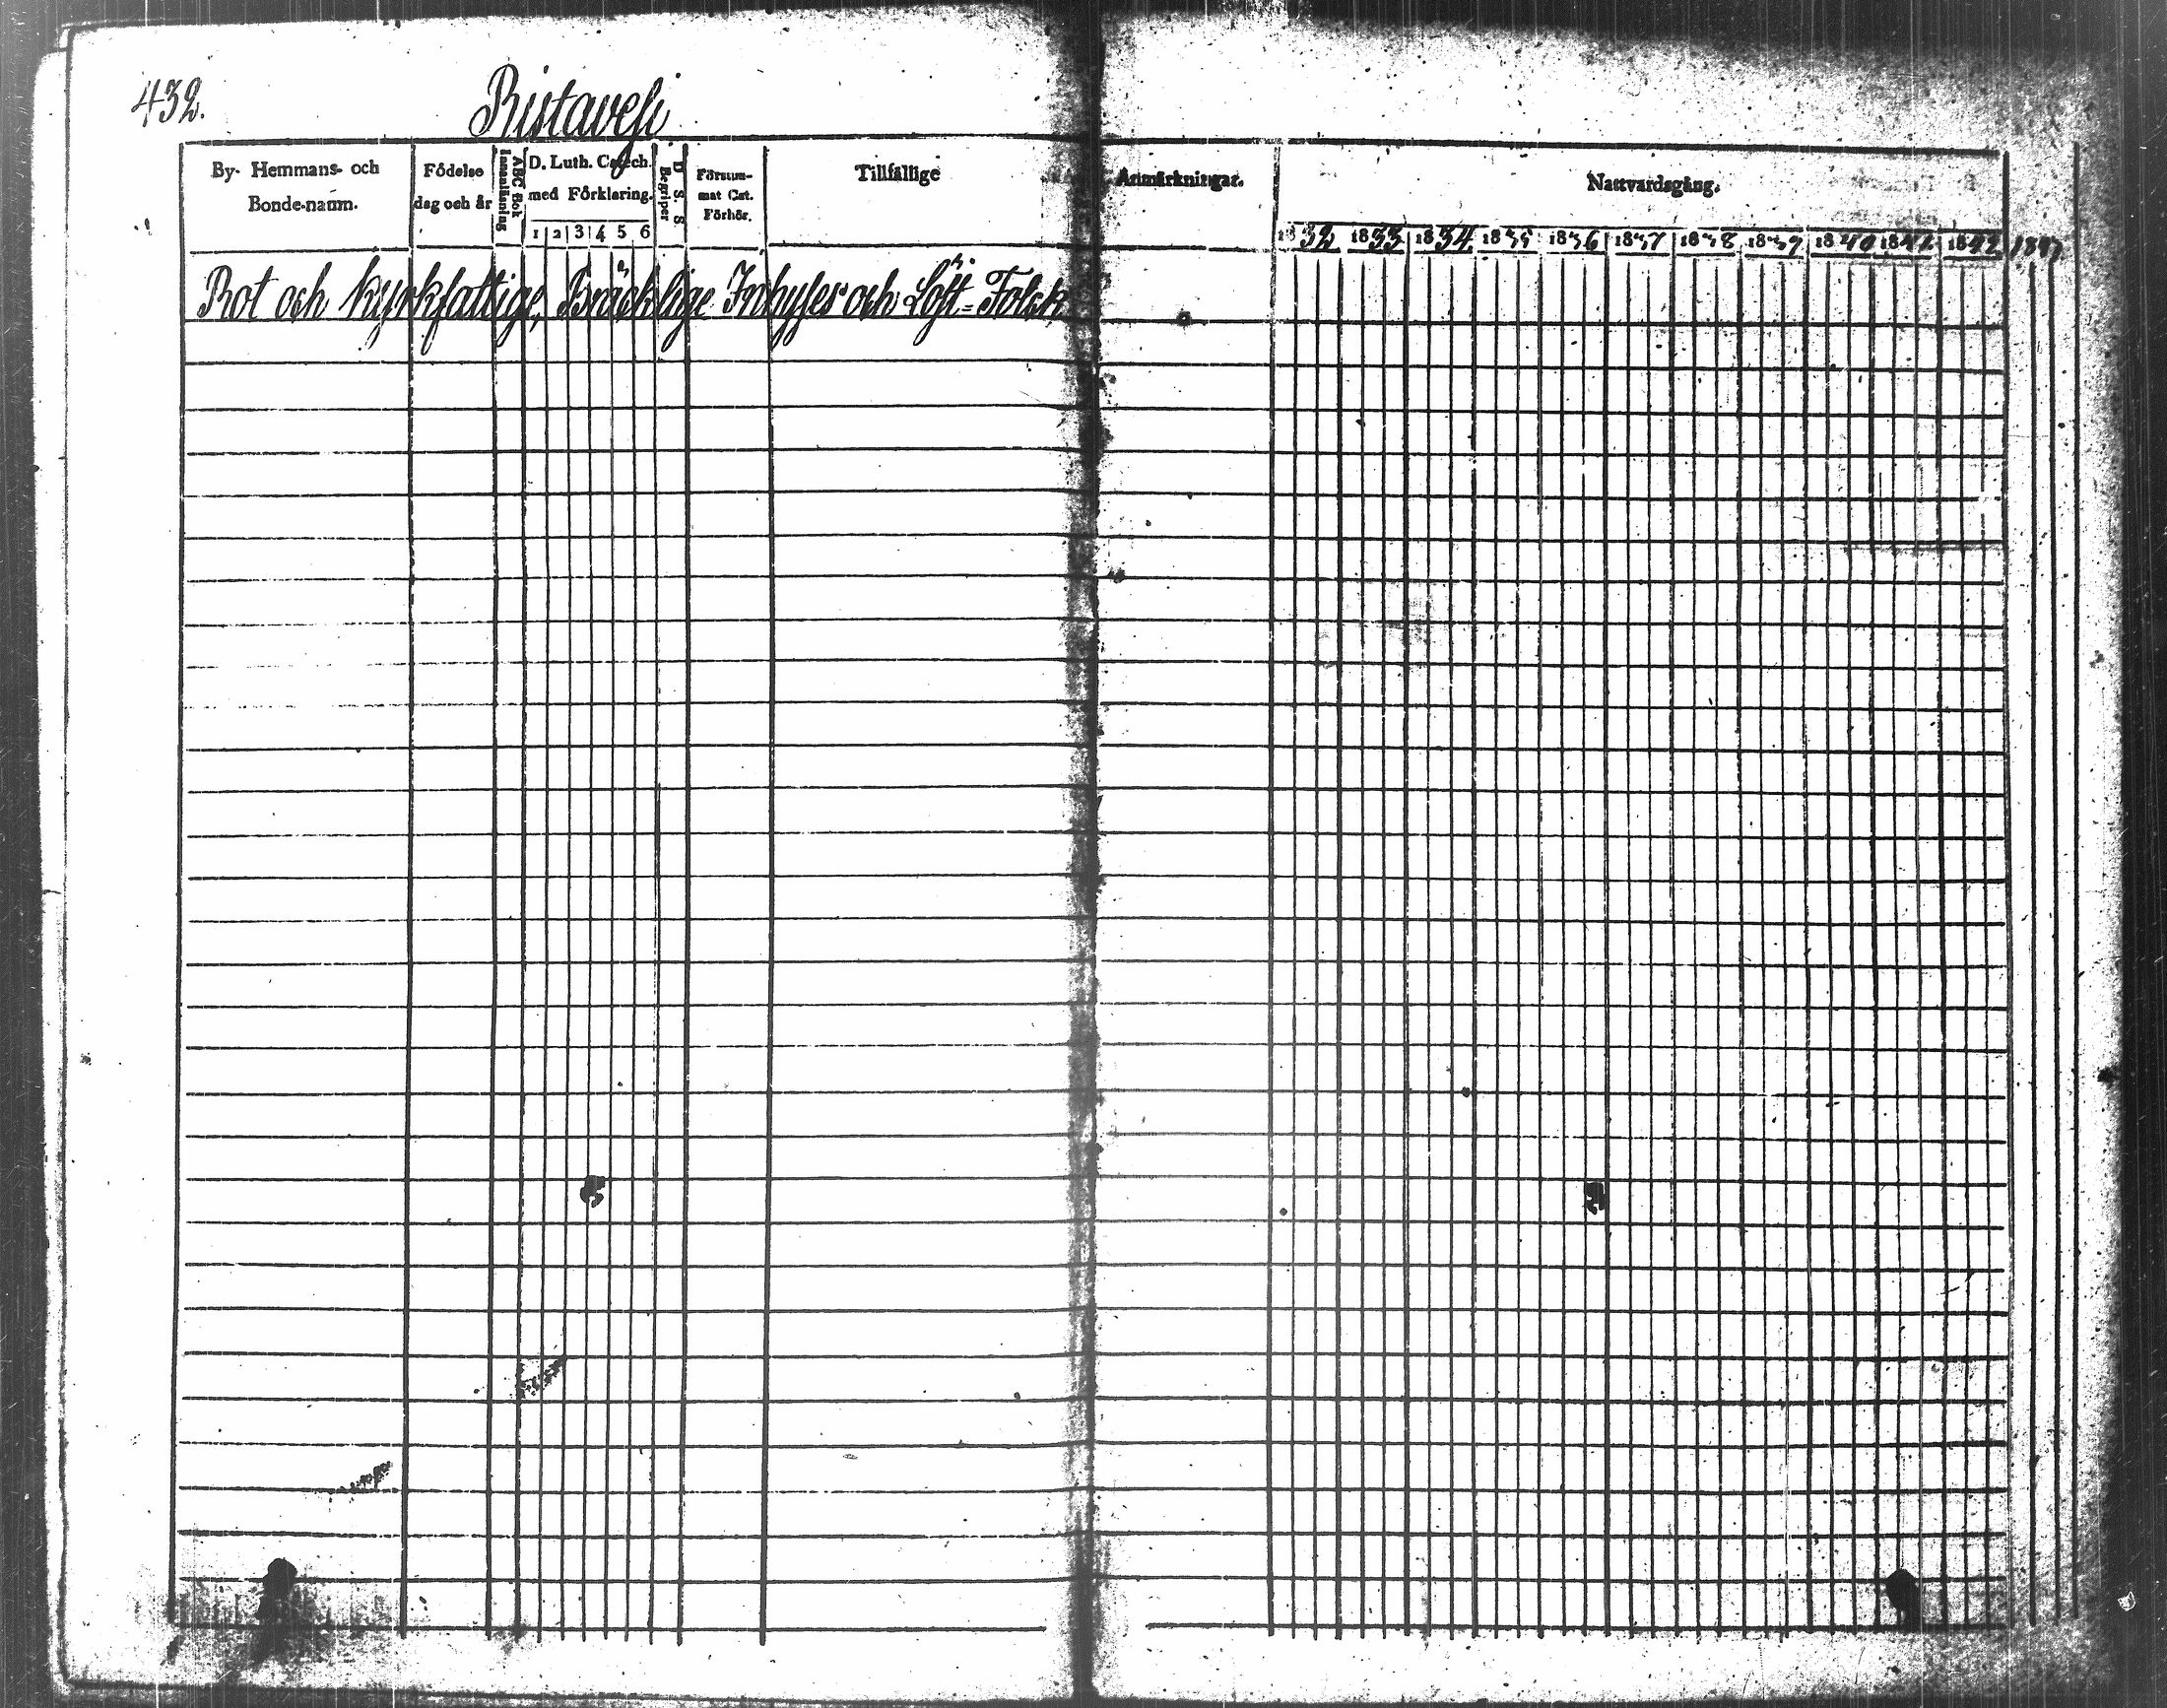 432.
Ristavesi
By- Hemmans- och Bonde-namn.
Födelse dag och år
ABC Bok Innanläsning
D. Luth. Catech. med Förklaring.
1 2 3 4 5 6
D. S. S. Begriper
Försum- mat Cat. Förhör.
Tillfällige
Anmärkningar.
Nattvardsgång.
1832 1833 1834 1835 1836 1837 1838 1839 1840 1841 1842 1843
Rot och kyrkfattige, Bräcklige Inhyses och Löst-Folck